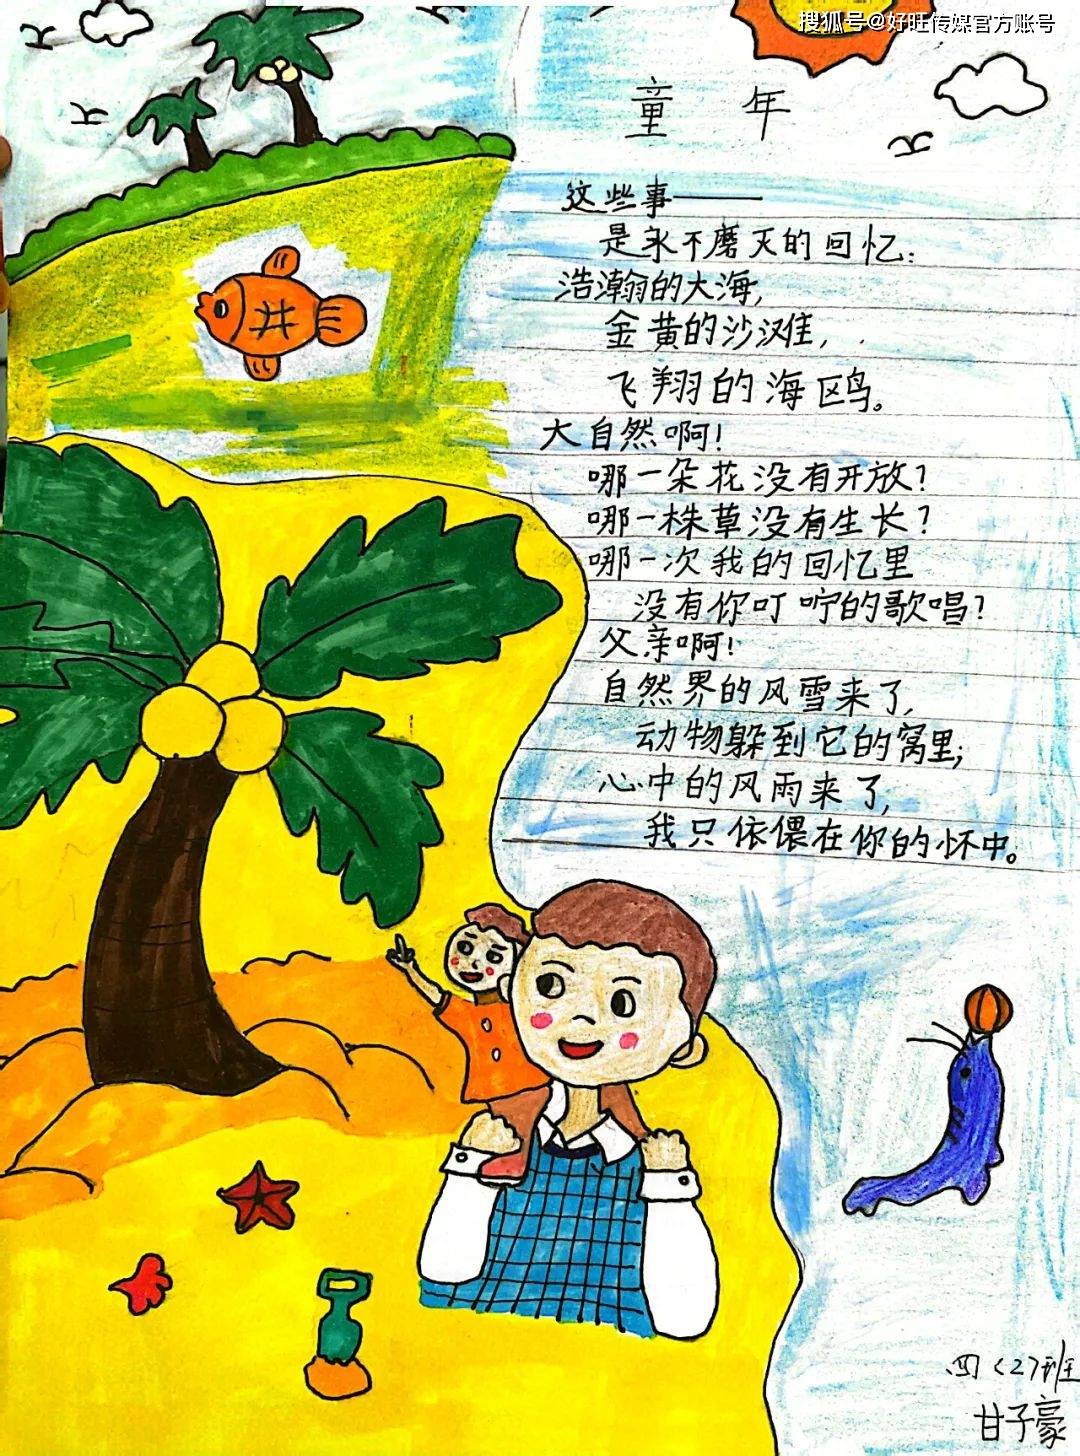 搜狐号@好旺传媒官方账号
童 年
这些事——
是永不磨灭的回忆:
浩瀚的大海,
金黄的沙滩,
飞翔的海鸥。
大自然啊!
哪一朵花没有开放?
哪一株草没有生长?
哪一次我的回忆里
没有你叮咛的歌唱?
父亲啊!
自然界的风雪来了,
动物躲到它的窝里;
心中的风雨来了,
我只依偎在你的怀中。
四(2)班
甘子豪